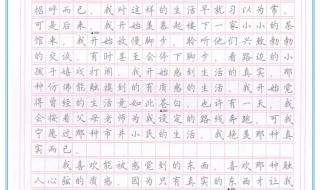 招呼而已，我对这样的生活早就习以为常，
可是后来，我开始羡慕起下一家小小的茶
馆来，我开始放慢脚步，聆听他们兴致勃勃
的交谈，有时甚至会停下脚步，看路边的小
孩子嬉戏打闹，我开始感到生活的真实，那
种仿佛能触摸到的有质感的生活，我开始觉
得曾经的生活竟如此苍白，也许有一天，我
会按着父母老师为我设定的路线奔跑，可我
宁愿过那种市井小民的生活，我艳羡那种真
实而已。
我喜欢能被感觉到的东西，喜欢那种触
人心弦的质感，因为只有真实的东西才让我